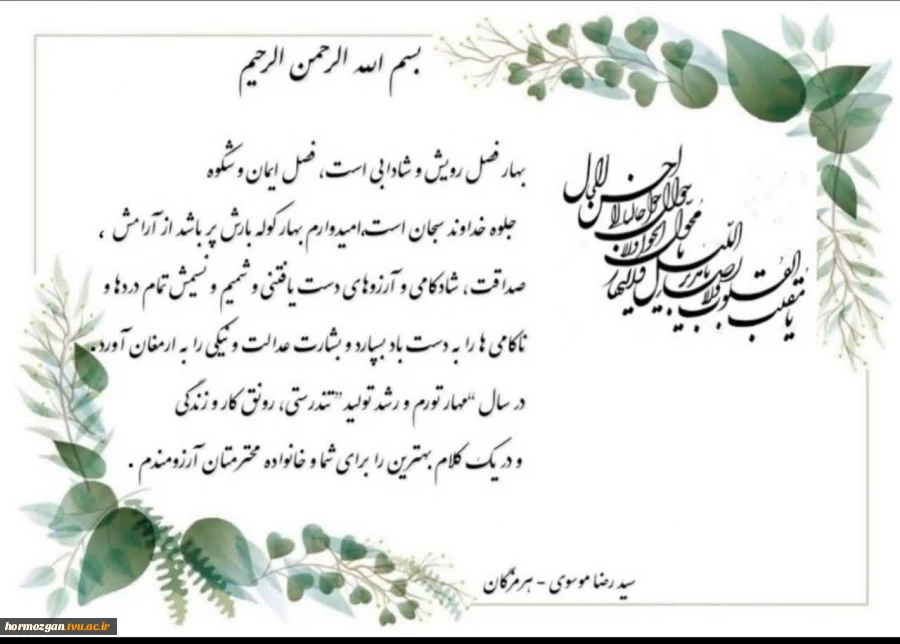 بسم الله الرحمن الرحیم
یا مقلب القلوب و الابصار
یا مدبر اللیل و النهار
یا محول الحول و الاحوال
حول حالنا الی احسن الحال
بهار فصل رویش و شادابی است، فصل ایمان و شکوه
جلوه خداوند سبحان است،امیدوارم بهار کوله بارش پر باشد از آرامش ،
صداقت ، شادکامی و آرزوهای دست یافتنی و شمیم و نسیمش تمام دردها و
ناکامی ها را به دست باد بسپارد و بشارت عدالت و نیکی را به ارمغان آورد.
در سال “مهار تورم و رشد تولید”تندرستی، رونق کار و زندگی
و در یک کلام بهترین را برای شما و خانواده محترمتان آرزومندم .
سید رضا موسوی - هرمزگان
hormozgan.tvu.ac.ir